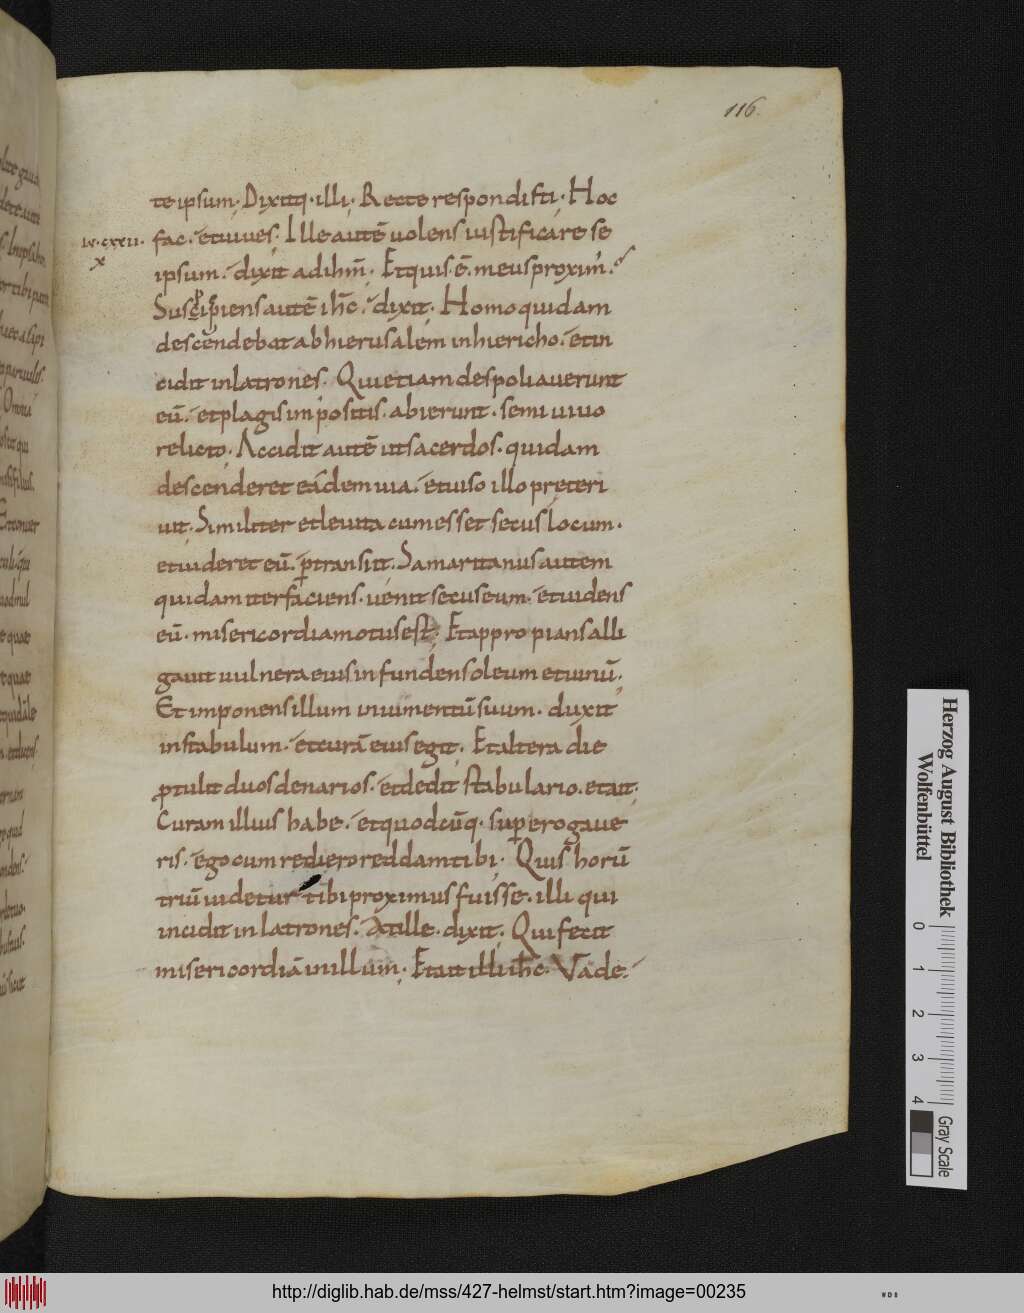 116.
te ipsum. Dixitq. illi. Recte respondisti. Hoc
lu. cxxii.
x
fac. et uiues. Ille autē uolens iustificare se
ipsum. dixit ad ihm̄. Et quis ē. meus proxim.
Suscipiens autē ihc̄. dixit. Homo quidam
descendebat ab hierusalem in hiericho. et in
cidit in latrones. Qui etiam despoliauerunt
eū. et plagis impositis. abierunt. semi uiuo
relicto. Accidit autē ut sacerdos. quidam
descenderet eādem uia. et uiso illo pręteri
uit. Similiter et leuita cum esset secus locum.
et uideret eū. p̄transiit. Samaritanus autem
quidam iter faciens. uenit secus eum. et uidens
eū. misericordia motus est. Et appropians alli
gauit uulnera eius infundens oleum et uinū.
Et imponens illum in iumentū suum. duxit
in stabulum. et curā eius egit. Et altera die
ptulit duos denarios. et dedit stabulario. et ait.
Curam illius habe. et quodcūq. supererogaue
ris. ego cum rediero reddam tibi. Quis horū
triū uidetur tibi proximus fuisse. illi qui
incidit in latrones. At ille. dixit. Qui fecit
misericordiā in illum. Et ait illi ihc̄. Vade.
Herzog August Bibliothek
Wolfenbüttel
0 1 2 3 4
Gray Scale
http://diglib.hab.de/mss/427-helmst/start.htm?image=00235